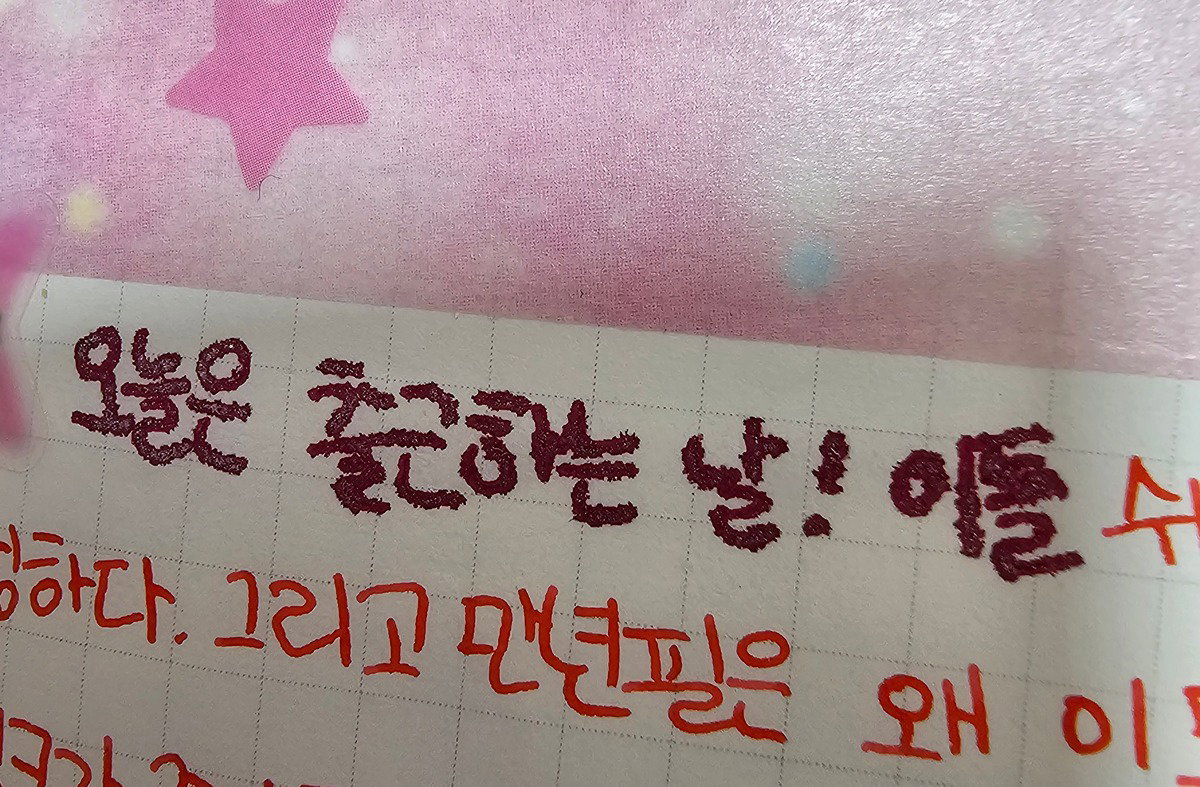 오늘은 출근하는 날! 이틀 쉬
하다. 그리고 만년필은 왜 이